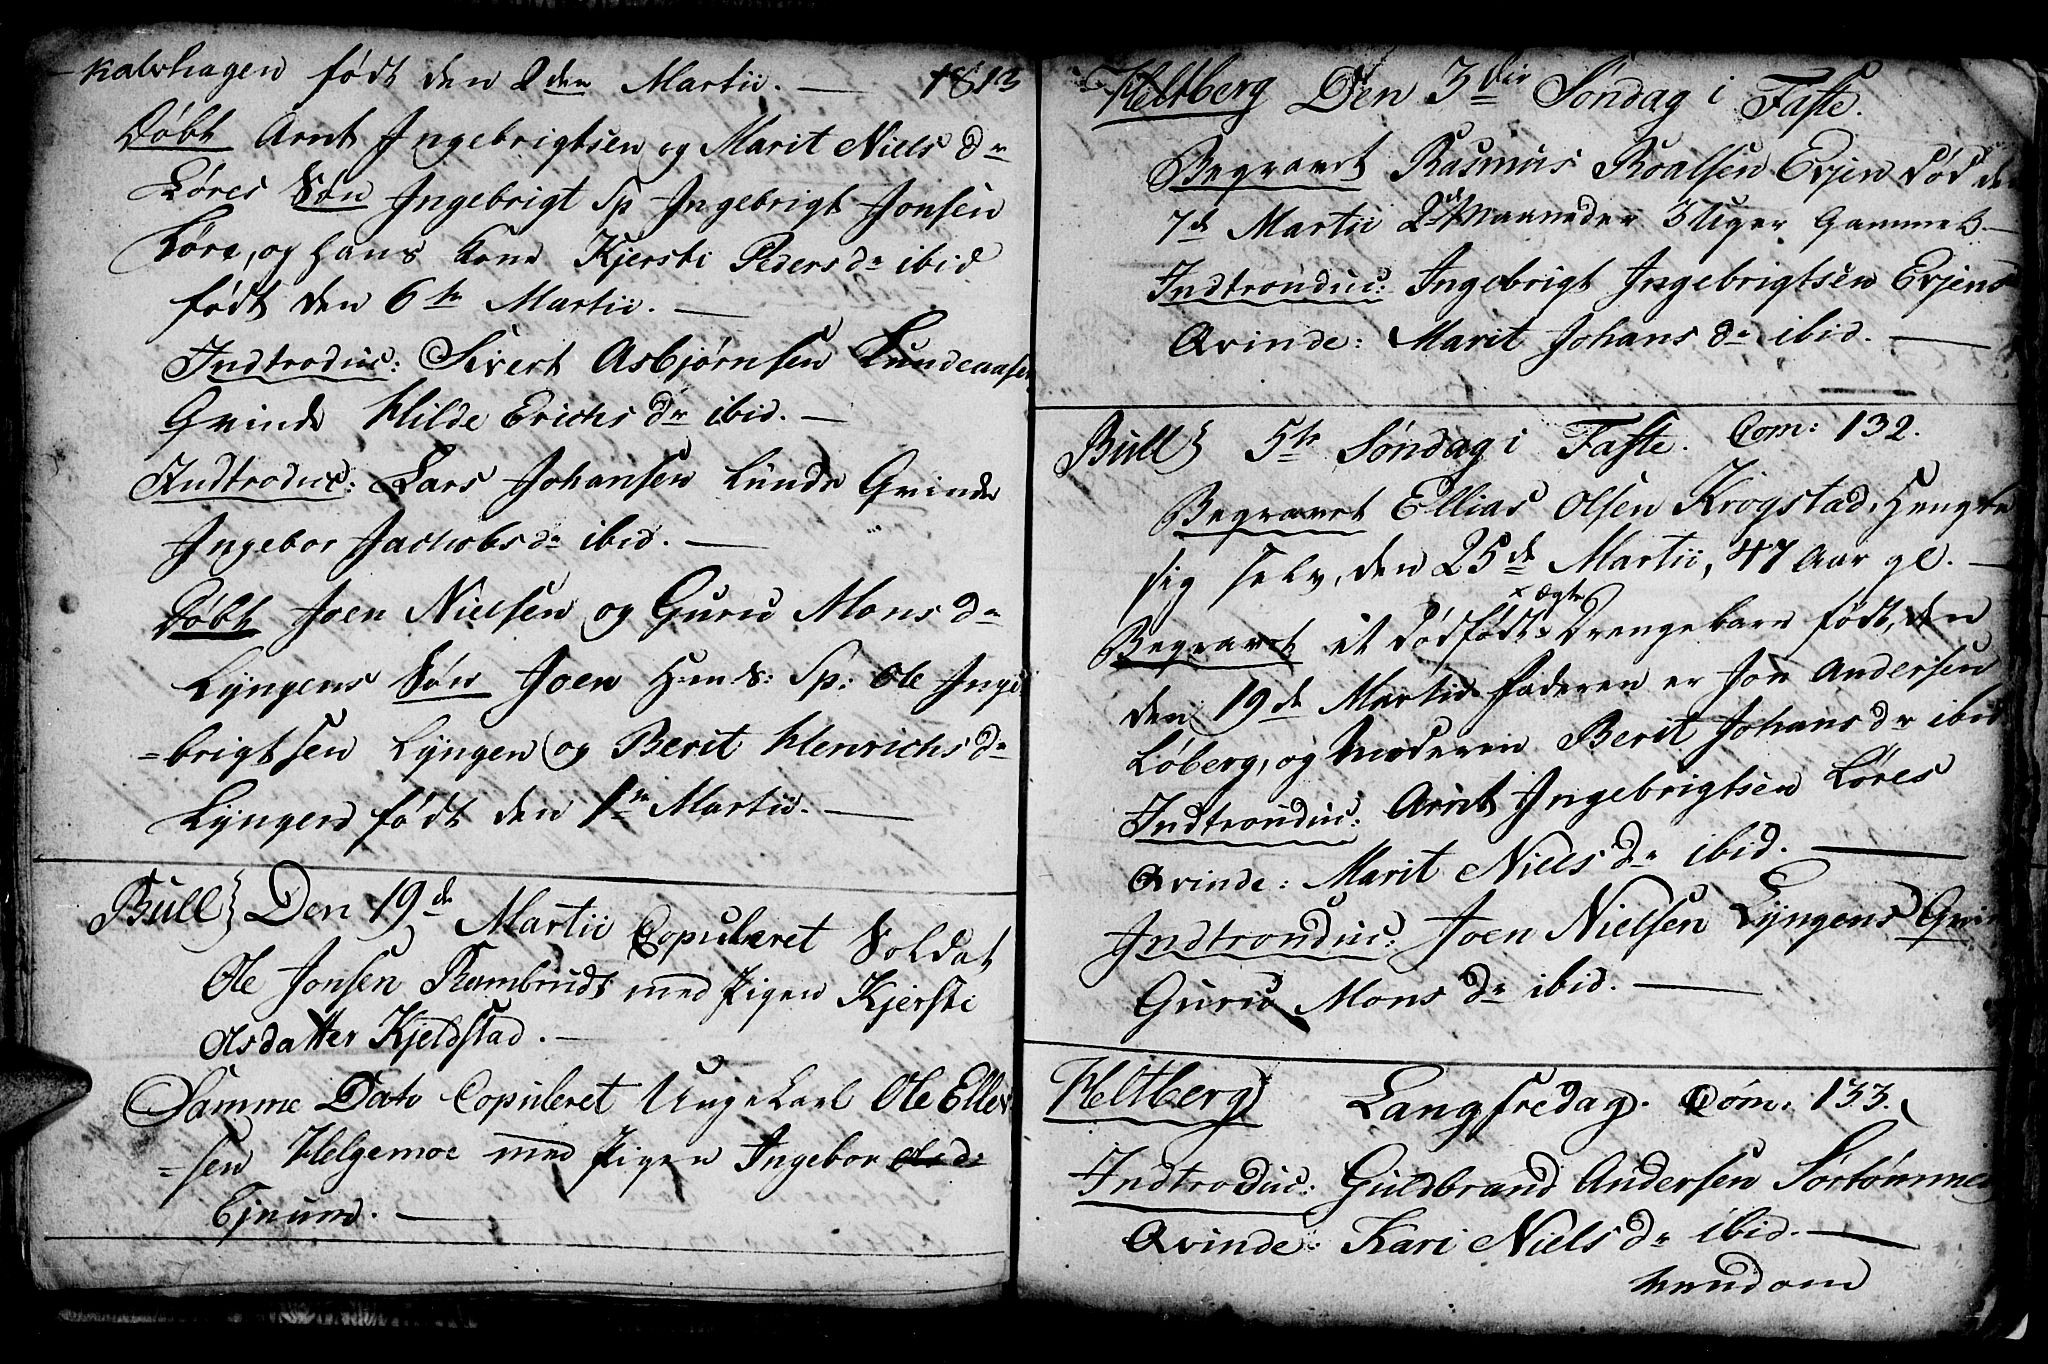 Kalvhagen født den 2den Martii. — 1813
Døbt Arnt Ingebrigtsen og Marit Nielsdr
Løres Søn Ingebrigt Sp Ingebrigt Jonsen
Løre, og hans Kone Kjersti Pedersdr ibid
født den 6te Martii. —
Indtroduc: Sivert Asbjørnsen Lundeaasen
Qvinde Hilde Erichsdr ibid. —
Indtroduc: Lars Johansen Lunde Qvinde
Ingebor Jachobsdr ibid. —
Døbt Joen Nielsen og Guru Monsdr
Lyngens Søn Joen H:m S: Sp: Ole Inge
=brigtsen Lyngen og Berit Henrichsdr
Lyngen født den 1te Martii. —
Bull} Den 19de Martii Copuleret Soldat
Ole Jonsen Rambruds med Pigen Kjersti
Olsdatter Kjeldstad. —
Samme Dato Copuleret Ungekarl Ole Ellev
=sen Helgemoe med Pigen Ingebor Olsd:
Ejnum. —
Heltberg Den 3die Søndag i Faste.
Begravet Rasmus Roalsen Evjen død den
7de Martii 2 Maaneder 3 Uger Gammel —
Indtronduc: Ingebrigt Ingebrigtsen Evjens
Qvinde: Marit Johansdr ibid. —
Bull} 5te Søndag i Faste. Com: 132.
Begravet Ellias Olsen Krogstad, Hengte
sig selv, den 25de Martii, 47 Aar gl. —
x ægte
Begravet et dødfødt x Drengebarn født, den
den 19de Martii Faderen er Jon Andersen
Løberg, og Moderen Berit Johansdr ibid
Indtronduc: Arnt Ingebrigtsen Løres
Qvinde: Marit Nielsdr ibid. —
Indtronduc: Joen Nielsen Lyngens Qvin
Guru Monsdr ibid. —
Heltberg} Langfredag. Com: 133.
Indtroduc: Guldbrand Andersen Sørtømme
Qvinde: Kari Nielsdr ibid. —